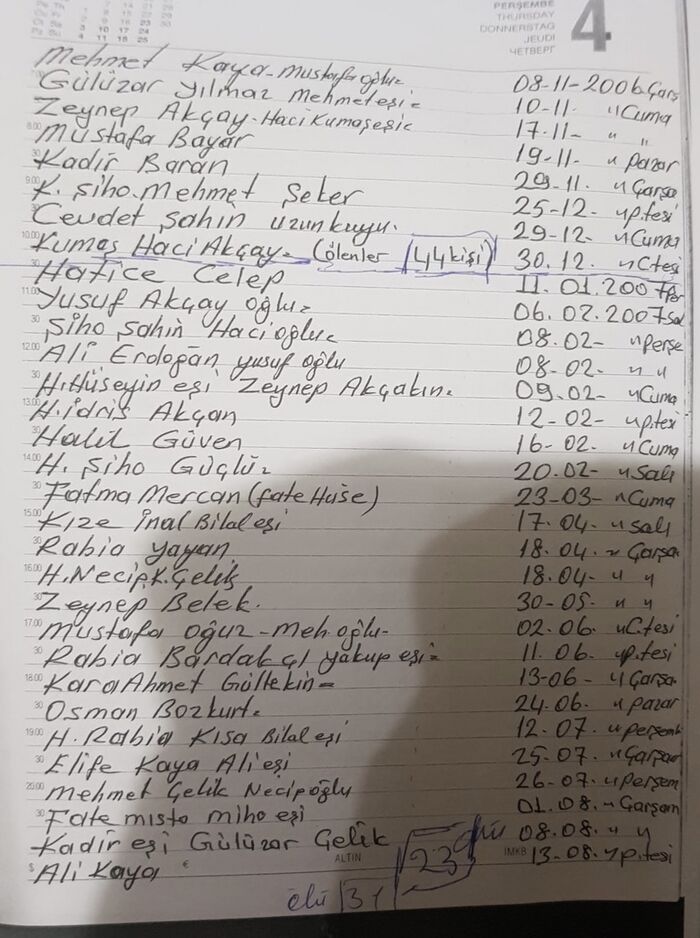 PERŞEMBE
THURSDAY
DONNERSTAG
JEUDI
ЧЕТВЕРГ
4
Mehmet Kaya-Mustafa oğlu- 08-11-2006 Çarş
Gülüzar Yılmaz Mehmet eşi= 10-11. " Cuma
Zeynep Akçay-Haci Kumaş eşi= 17-11- " "
Mustafa Bayar 19-11- " pazar
Kadir Baran 29-11. " Çarşa
K. Şiho. Mehmet Şeker 25-12- " p.tesi
Cevdet Şahin uzunkuyu. 29-12- " Cuma
Kumaş Haci Akçay- (ölenler 44 kişi) 30.12. " C.tesi
Hatice Celep 11.01.2007 Per
Yusuf Akçay oğlu- 06.02.2007 Sal
Şiho Şahin Haci oğlu- 08.02- " perşe
Ali Erdoğan yusuf oğlu 08-02- " "
H.Hüseyin eşi Zeynep Akçalın. 09.02- " Cuma
H.idris Akçan 12-02- " p.tesi
Halil Güven 16-02. " Cuma
H. Şiho Güçlü- 20.02- " Salı
Fatma Mercan (fate Huse) 23-03- " Cuma
Kıze İnal Bilal eşi 17.04- " Salı
Rabia yayan 18.04. " Çarşa
H.Necip.K.Çelik 18.04- " "
Zeynep Belek. 30-05- " "
Mustafa Oğuz-Meh.oğlu- 02.06. " C.tesi
Rabia Bardakçı yakup eşi= 11.06- " p.tesi
Kara Ahmet Gültekin= 13-06- " Çarşa
Osman Bozkurt. 24.06. " pazar
H. Rabia Kısa Bilal eşi 12.07. " perşemb
Elife Kaya Ali eşi 25-07. " Çarşa
Mehmet Çelik Necipoğlu 26-07. " perşem
Fate misto miho eşi 01.08. " Çarşam
Kadir eşi Gülüzar Çelik 08.08. " "
Ali Kaya 13-08. " p.tesi
ALTIN
€
$
İMKB
23 ölü
ölü 31